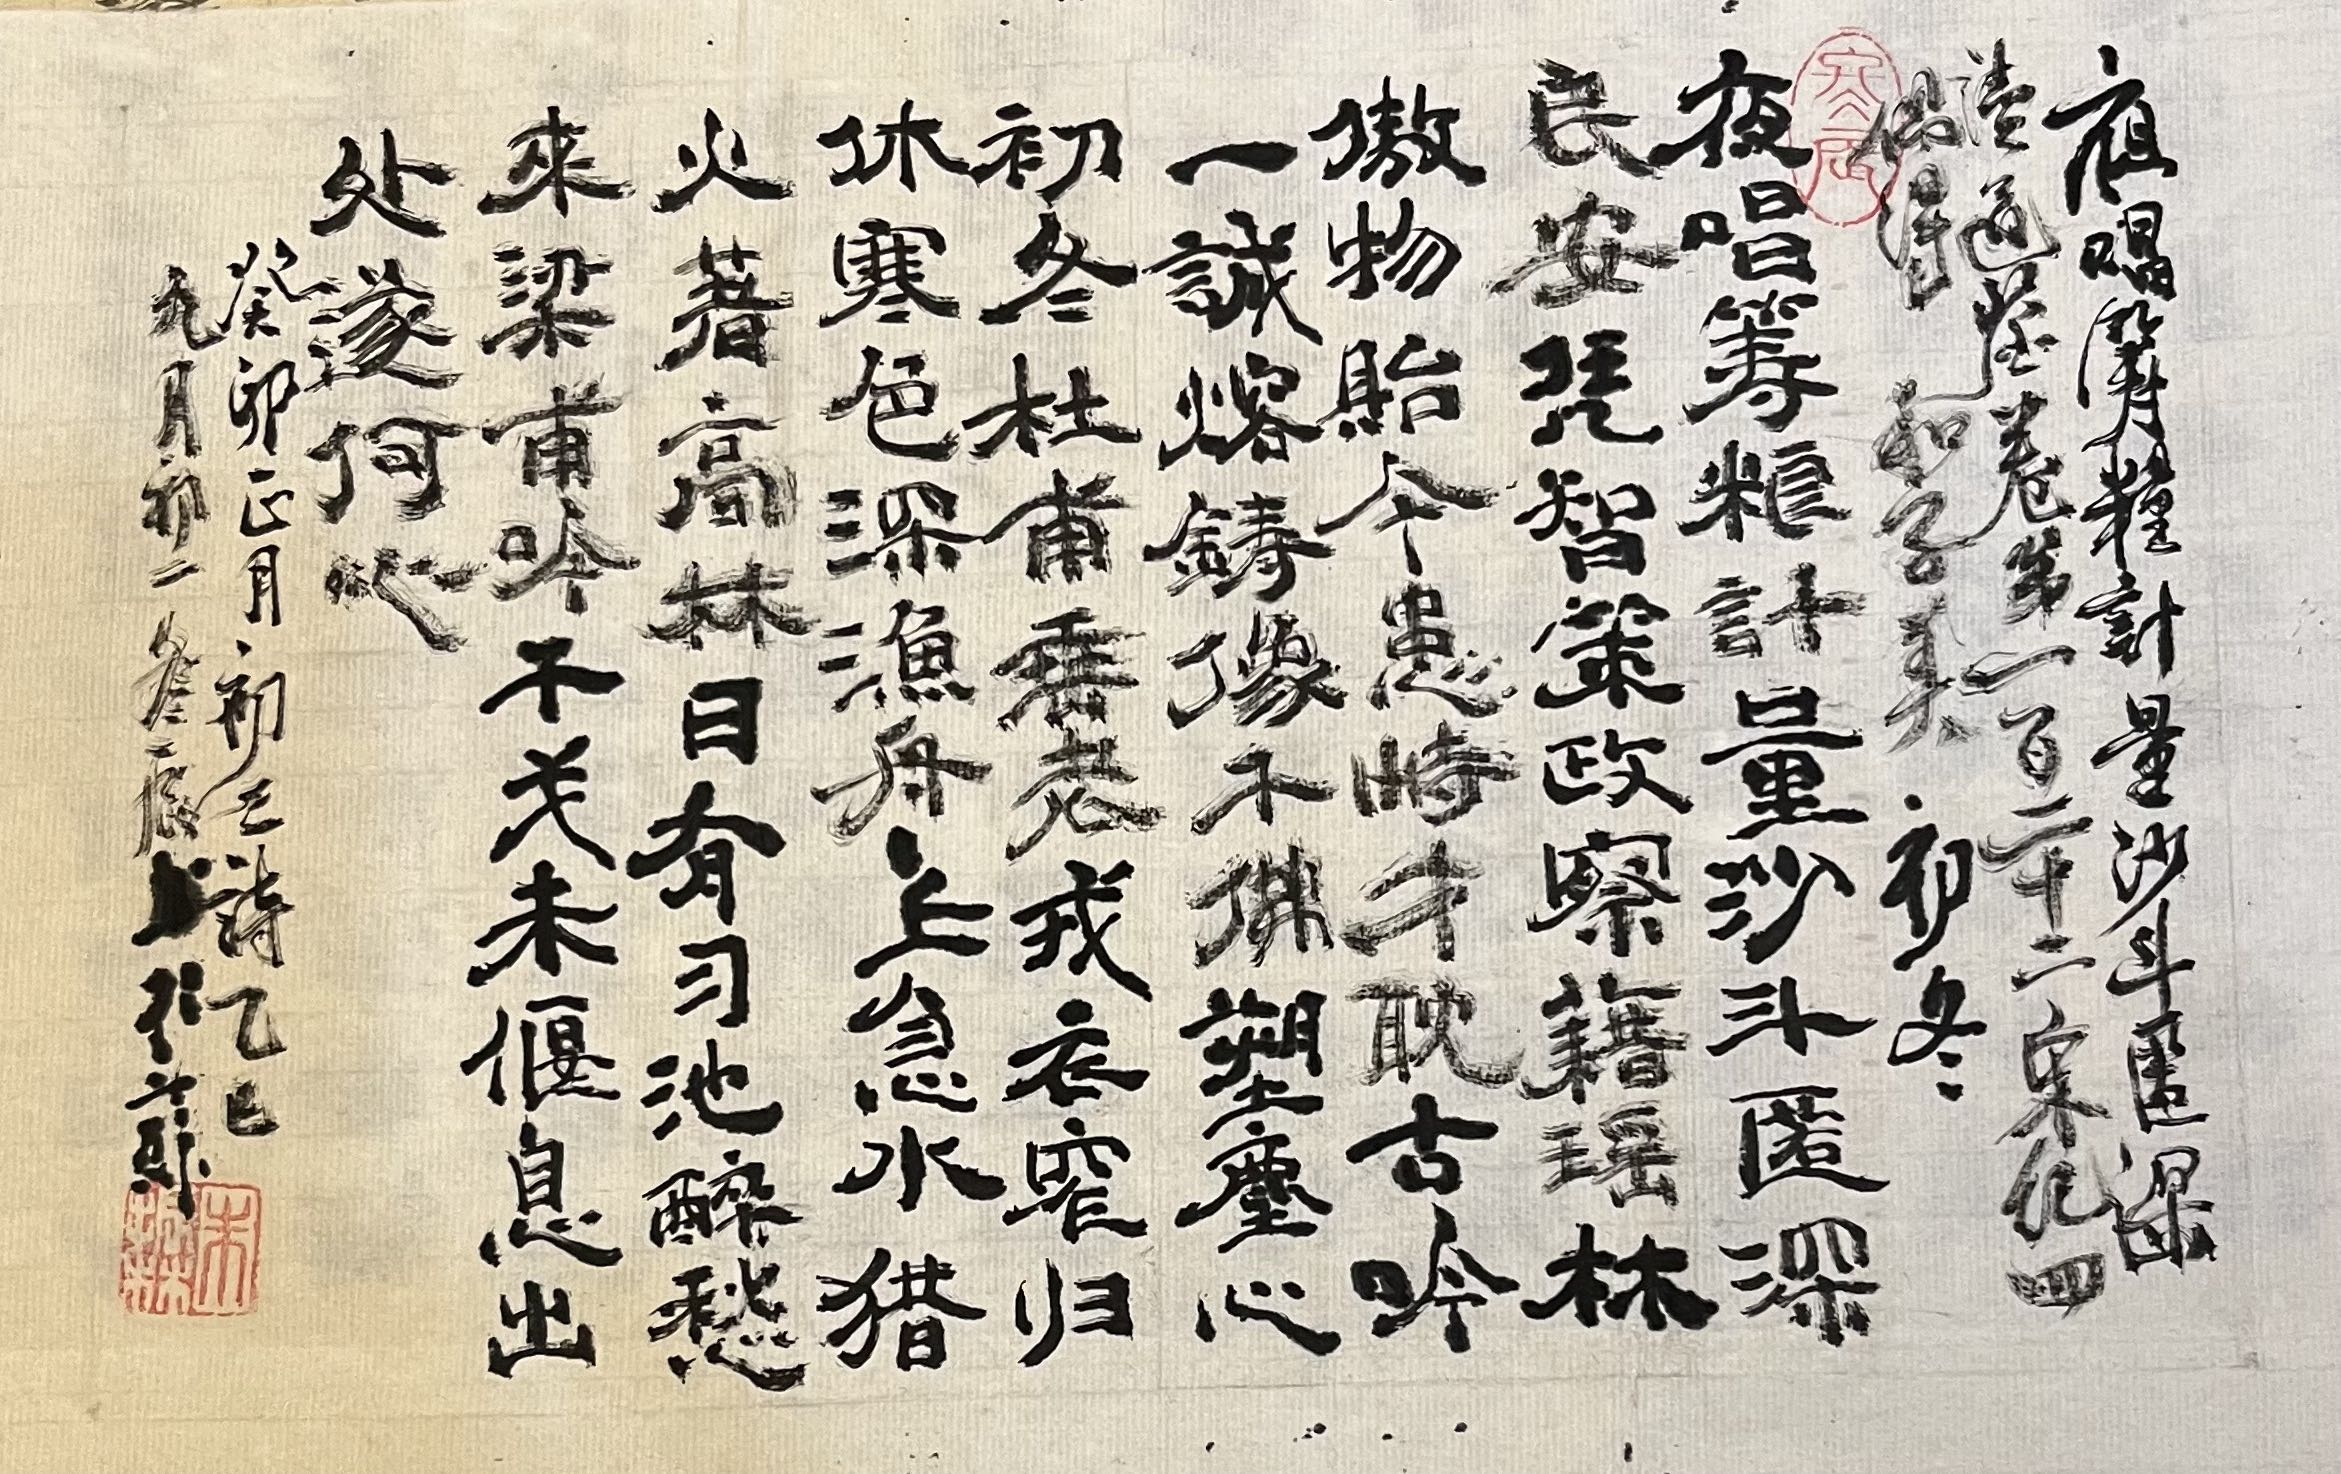 夜唱籌糧計量沙斗匿深
通鉴卷第一百二十二宋纪四
偶得 和子美 初冬
夜唱筹粮計量沙斗匿深
民安凭智策政察藉瑶林
傲物貽今患時才耽古吟
一誠熔鋳像不佛塑塵心
初冬杜甫垂老戎衣窄归
休寒色深漁舟上急水猎
火著高林日有习池醉愁
来梁甫吟干戈未偃息出
处遂何心
癸卯正月初三詩乙巳
九月初二